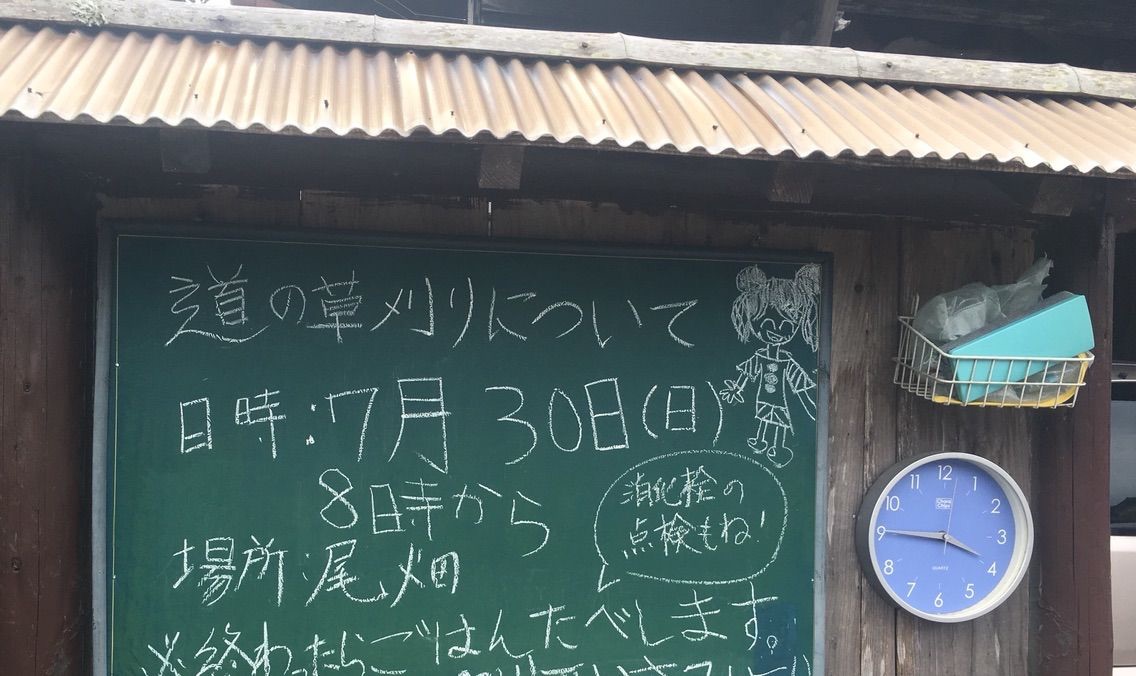 道の草刈りについて
日時:7月30日(日)
8時から
消化栓の
点検もね!
場所:尾畑
※終わったらごはんたべします。
12
1
2
3
4
5
6
7
8
9
10
11
QUARTZ